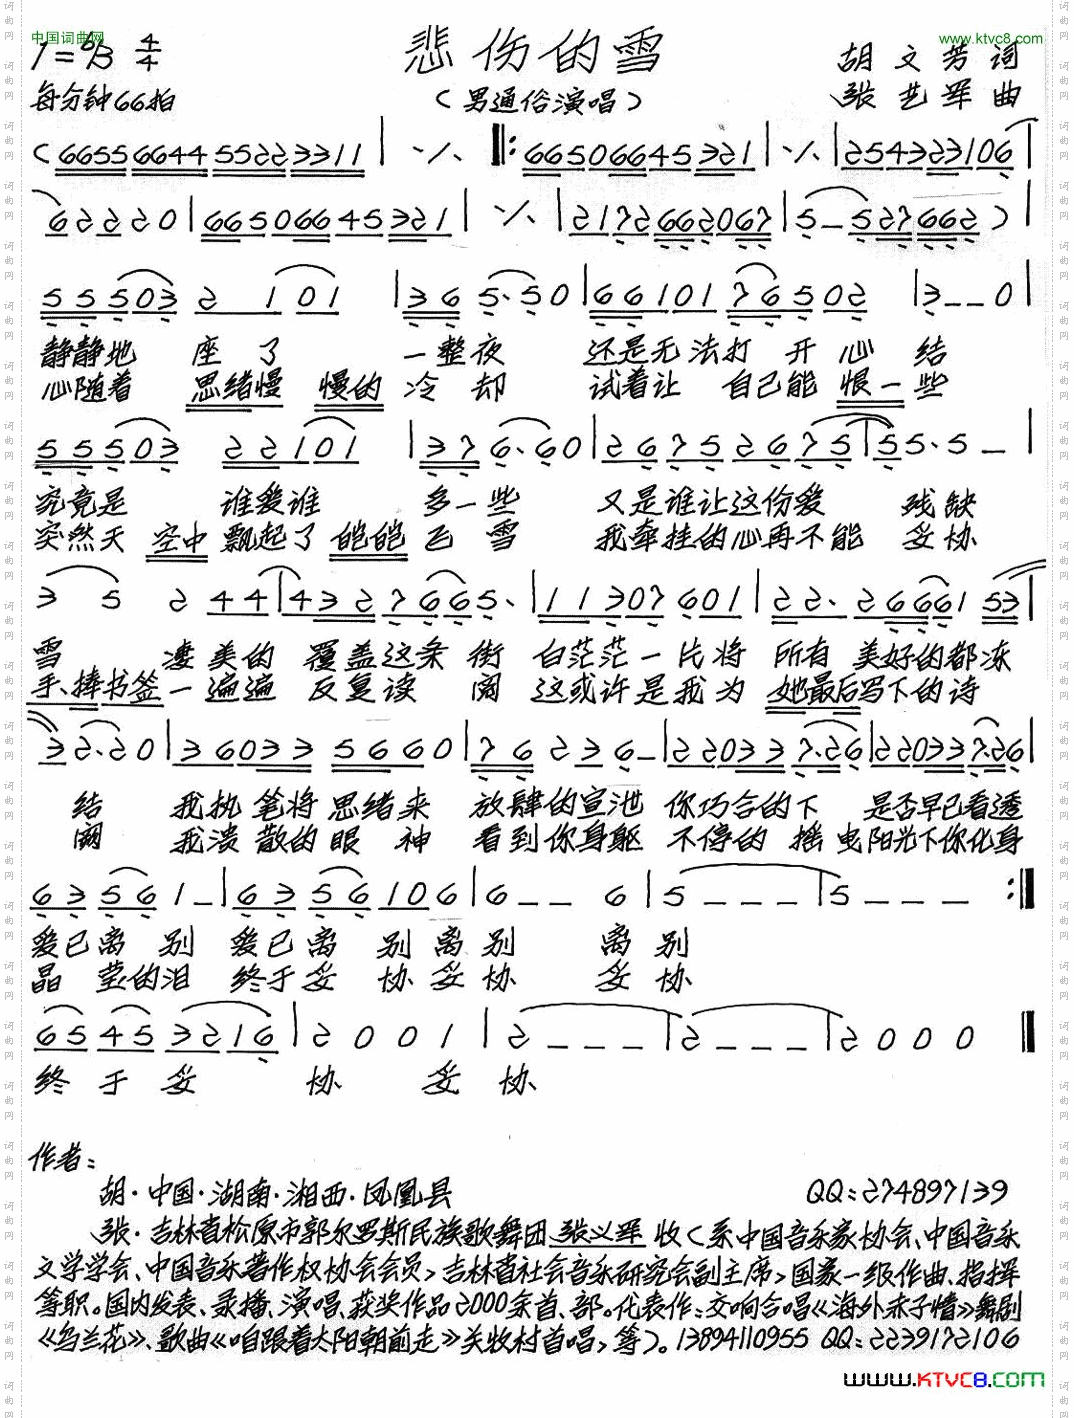 中国词曲网
www.ktvc8.com
悲伤的雪
1=♭B 4/4
胡文芳 词
每分钟66拍
(男通俗演唱)
张艺军 曲
(6655 6644 5522 3311 | ·/· ‖: 6650 6645 3321 | ·/· | 2543 23106 |
6 2 2 2 0 | 6650 6645 321 | ·/· | 2172 6620 67 | 5 – 527 662) |
5 5 503 2 1 01 | 3 6 5·50 | 66101 76502 | 3 – – 0 |
静静地 座了 一整夜 还是无法打开心结
心随着 思绪慢慢的冷却 试着让自己能恨一些
5 5 503 2 2 101 | 3 7 6·60 | 2 6 7 5 2 6 7 5 | 5 5·5 – |
究竟是 谁爱谁 多一些 又是谁让这份爱 残缺
突然天空中飘起了皑皑飞雪 我牵挂的心再不能 妥协
3 5 2 44 | 43 2 7 665· | 11 307 601 | 22·26661 53 |
雪 凄美的覆盖这条街 白茫茫一片将所有美好的都冻
手、捧书签一遍遍反复读阅 这或许是我为她最后写下的诗
3 2·20 | 36033 5660 | 76 2 3 6 – | 22033 7·26 | 22033 7·26 |
结 我执笔将思绪来放肆的宣泄 你巧合的下 是否早已看透
阙 我溃散的眼神看到你身躯 不停的摇曳阳光下你化身
6 3 56 1 – | 63 56 106 | 6 – – 6 | 5 – – – | 5 – – – :‖
爱已离别 爱已离别离别 离别
晶莹的泪 终于妥协妥协 妥协
65 45 3216 | 2 0 0 1 | 2 – – – | 2 – – – | 2 0 0 0 ‖
终于妥协 妥协
作者:
胡·中国·湖南·湘西·凤凰县 QQ:274897139
张·吉林省松原市郭尔罗斯民族歌舞团 张义军 收(系中国音乐家协会、中国音乐
文学学会、中国音乐著作权协会会员,吉林省社会音乐研究会副主席,国家一级作曲、指挥
等职。国内发表、录播、演唱、获奖作品2000余首、部。代表作:交响合唱《海外赤子情》舞剧
《乌兰花》、歌曲《咱跟着太阳朝前走》关牧村首唱,等)。13894110955 QQ:2239172106
www.KTVC8.com